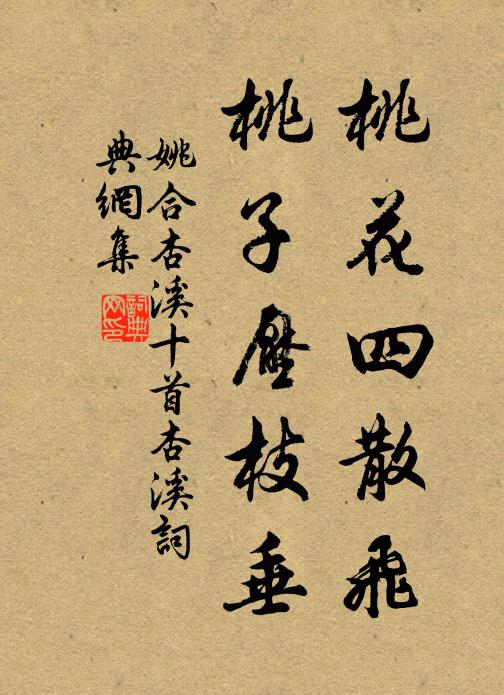 桃花四散飛
桃子壓枝垂
姚合杏溪十首杏溪詞
典網集
詞典網印